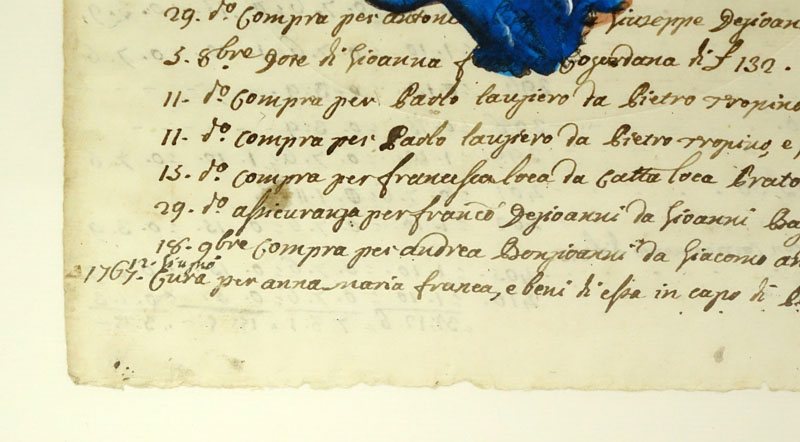 29. d.º Compra per antoni Giuseppe Dejoanni
5. 8bre Dote di Gioanna di £ 132.
11. d.º Compra per Paolo laujiero da Pietro Tropino
11. d.º Compra per Paolo laujiero da Pietro Tropino, e
15. d.º Compra per francesca loca da Catta loca Prato
29. d.º assicuranza per franco Dejoanni da Gioanni Ba
18. 9bre Compra per andrea Bonjioanni da Giacomo an
12. Giugno
1767. Cura per anna maria franca, e beni di essa in capo di